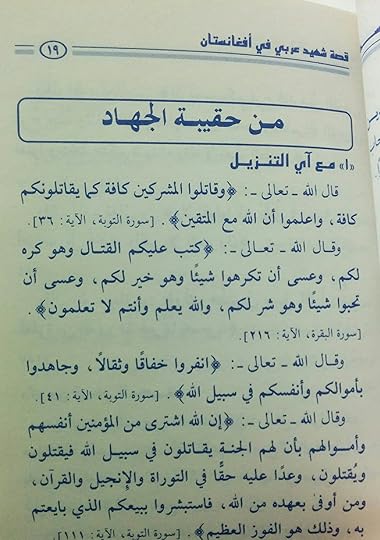 قصة شهيد عربي في أفغانستان
١٩
من حقيبة الجهاد
«١» مع آي التنزيل
قال الله ـ تعالى ـ: ﴿وقاتلوا المشركين كافة كما يقاتلونكم
كافة، واعلموا أن الله مع المتقين﴾. [سورة التوبة، الآية: ٣٦].
وقال الله ـ تعـالى ـ: ﴿كتب عليكم القتال وهو كره
لكم، وعسى أن تكرهوا شيئًا وهو خير لكم، وعسى أن
تحبوا شيئًا وهو شر لكم، والله يعلم وأنتم لا تعلمون﴾.
[سورة البقرة، الآية: ٢١٦].
وقال الله ـ تعالى ـ: ﴿انفروا خفافًا وثقالًا، وجاهدوا
بأموالكم وأنفسكم في سبيل الله﴾. [سورة التوبة، الآية: ٤١].
وقال الله ـ تعالى ـ: ﴿إن الله اشترى من المؤمنين أنفسهم
وأمـوالهم بأن لهم الجنـة يقـاتلون في سبيـل الله فيقتلون
ويُقتلون، وعدًا عليه حقًّا في التوراة والإنجيل والقرآن،
ومن أوفى بعهده من الله، فاستبشروا ببيعكم الذي بايعتم
به، وذلك هو الفوز العظيم﴾. [سورة التوبة، الآية: ١١١].